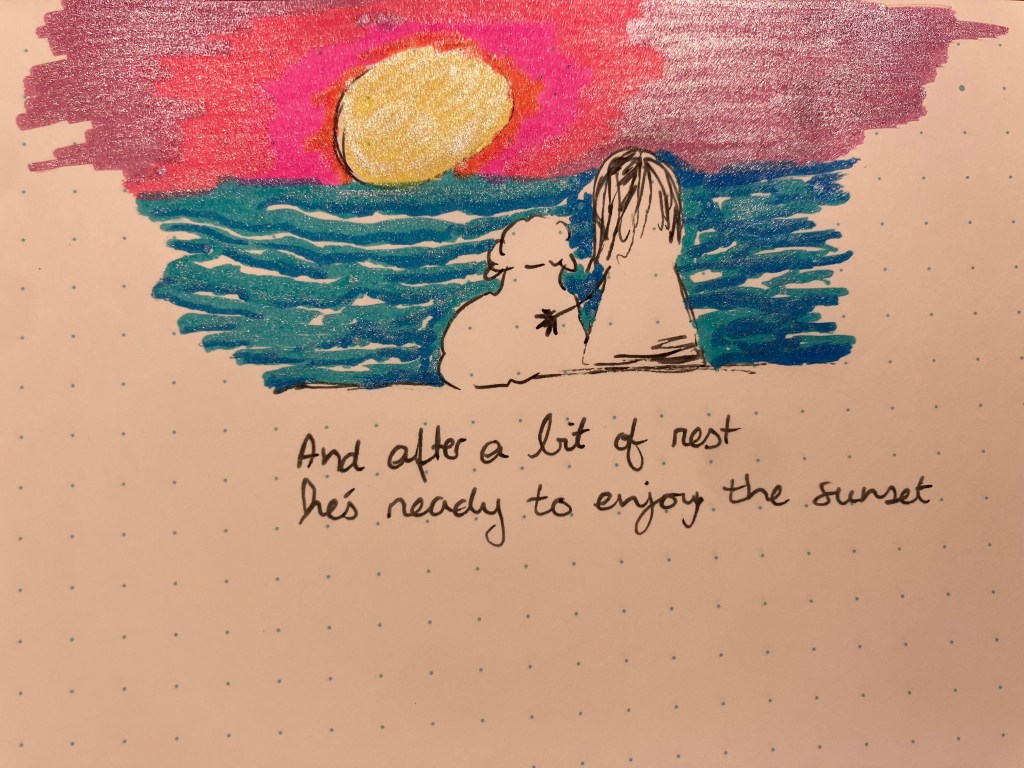 And after a bit of rest
he's ready to enjoy the sunset